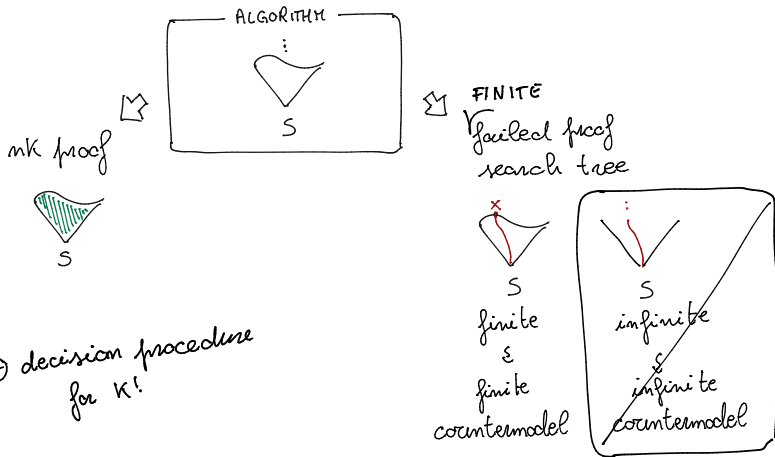 ALGORITHM
⋮
S
nK proof
S
FINITE
failed proof
search tree
x
S
finite
&
finite
countermodel
⋮
S
infinite
&
infinite
countermodel
decision procedure
for K!